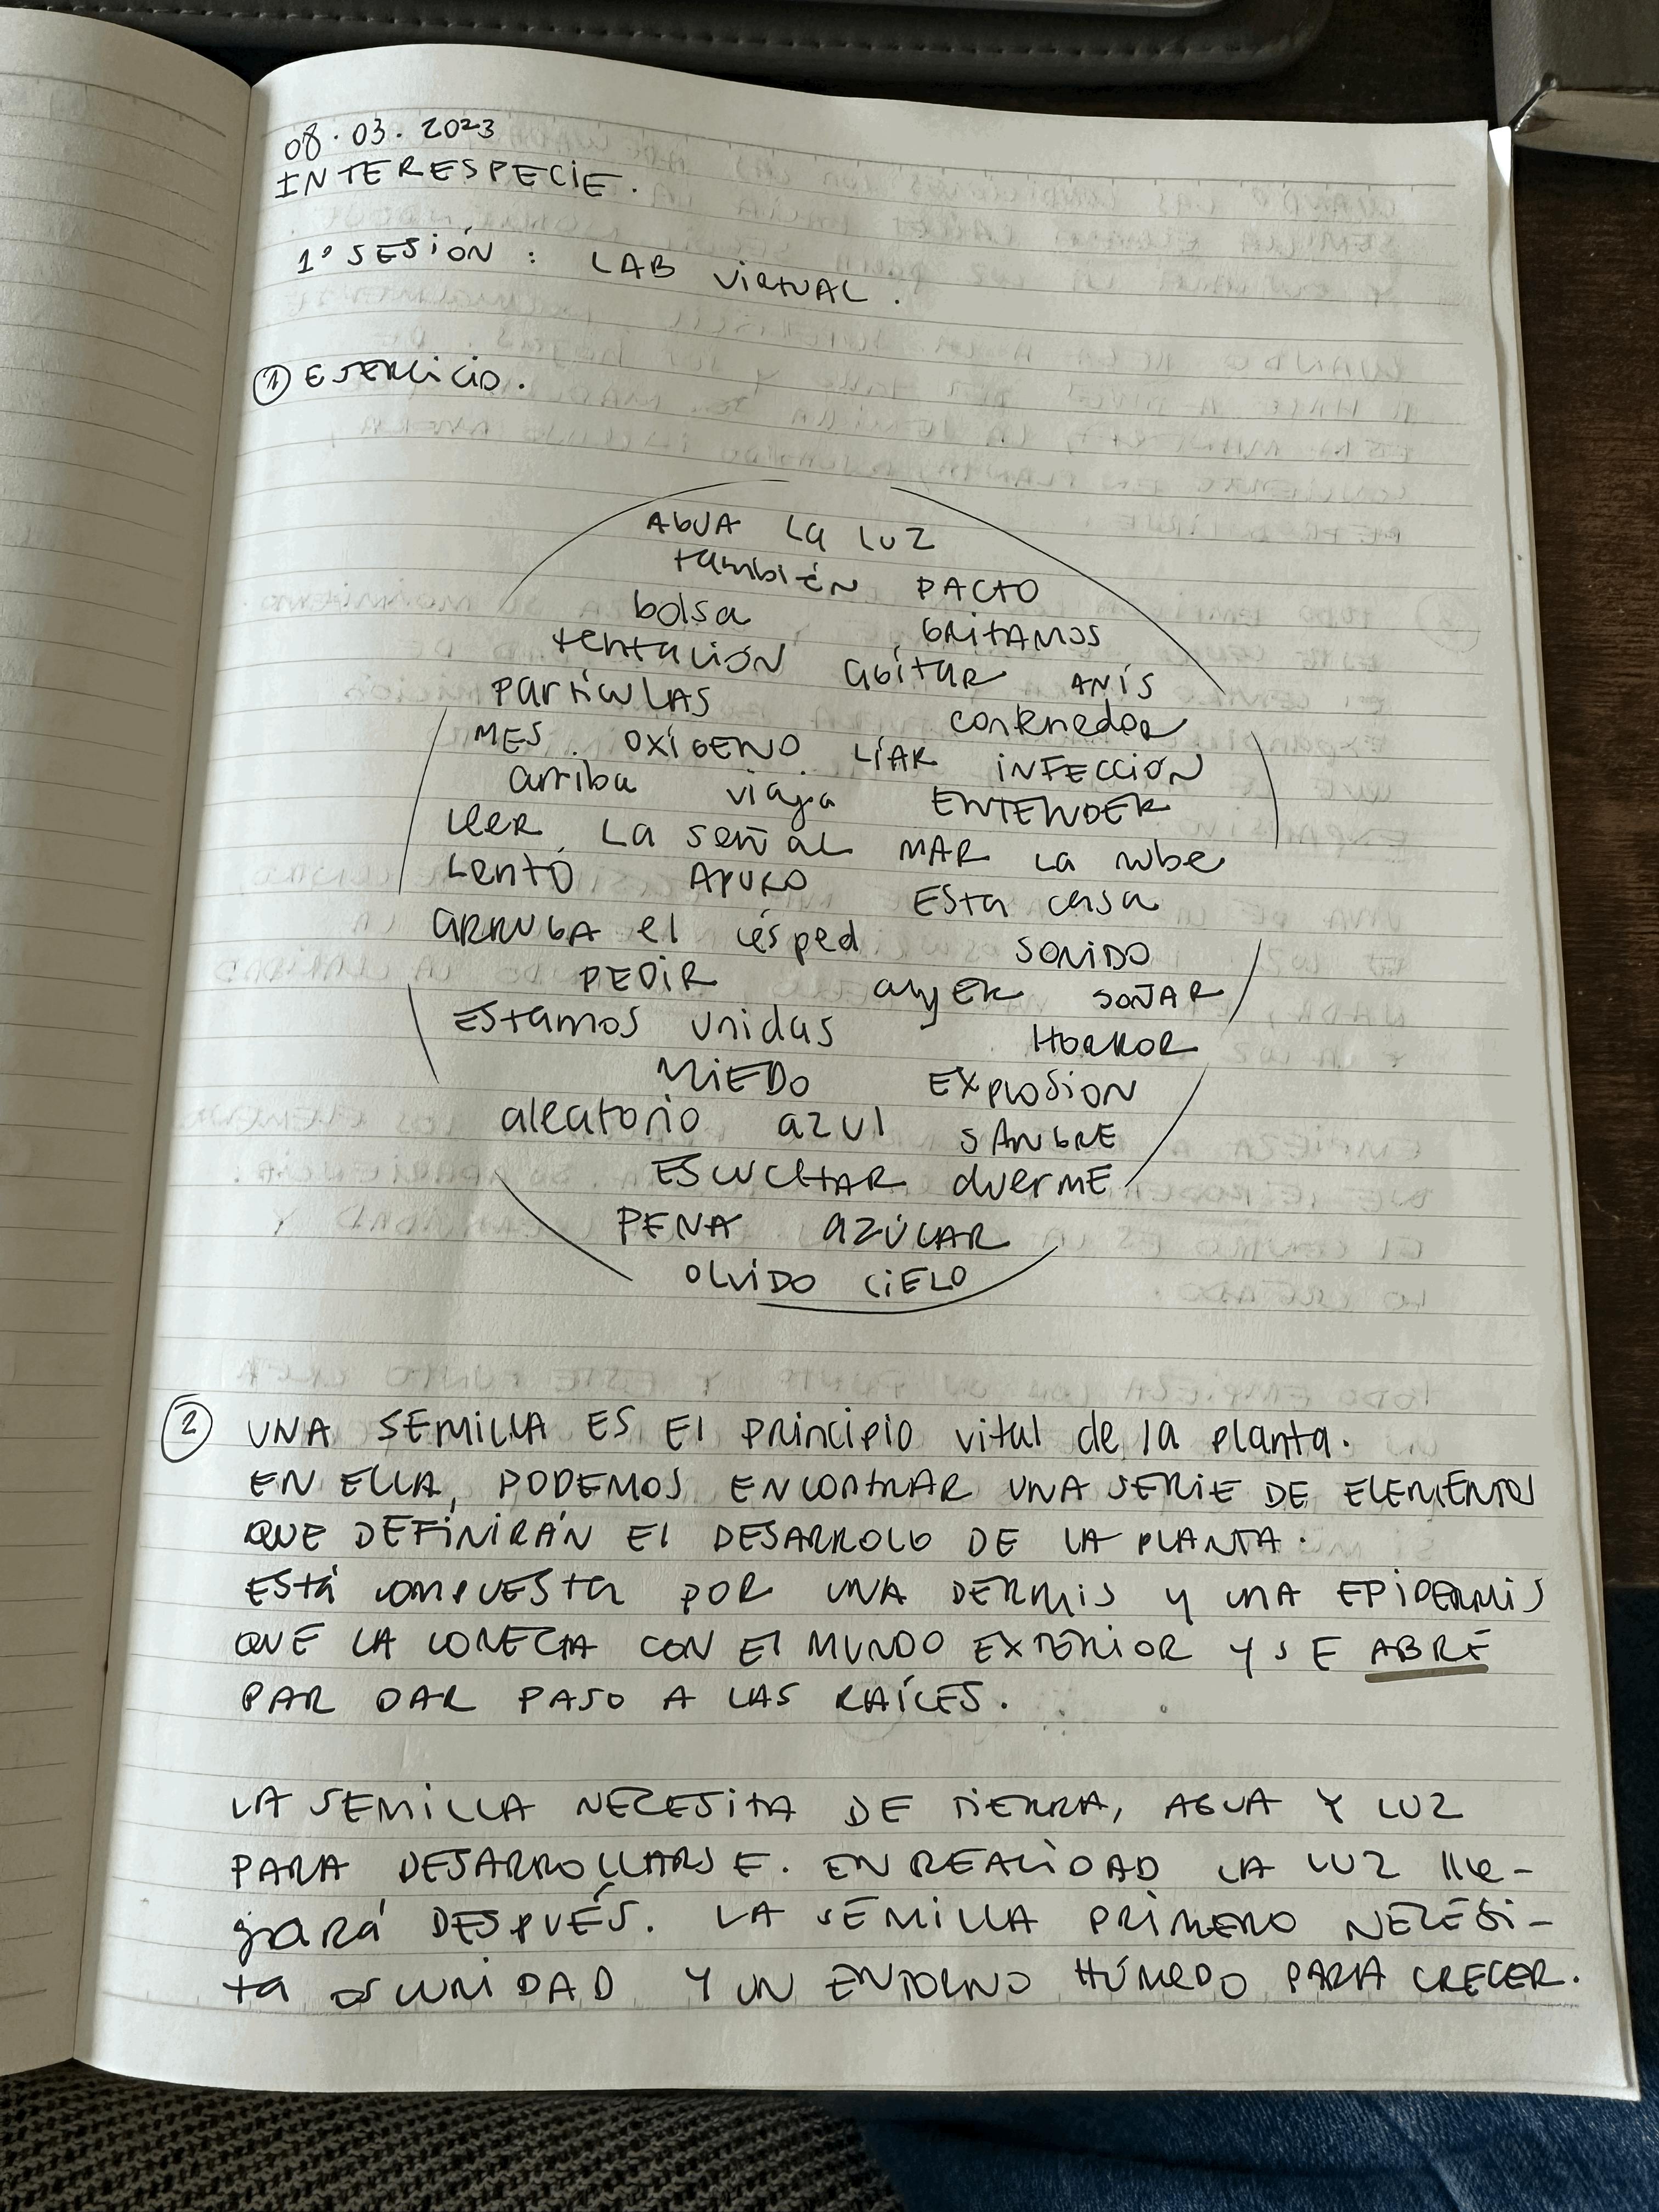 08.03.2023
INTERESPECIE.
1º SESIÓN : LAB VIRTUAL.
① EJERCICIO.
AGUA LA LUZ
también PACTO
bolsa GRITAMOS
tentación AGITAR ANÍS
PARTÍCULAS contenedor
MES. OXÍGENO. LÍAR INFECCIÓN
arriba viaja ENTENDER
LEER. LA SEÑAL MAR LA nube
LENTO APURO ESTA CASA
ARRUGA el césped SONIDO
PEDIR ayer SOÑAR
ESTAMOS UNIDAS HORROR
MIEDO EXPLOSIÓN
aleatorio azul SANGRE
ESCUCHAR DUERME
PENA AZÚCAR
OLVIDO CIELO
② UNA SEMILLA ES El PRINCIPIO vital de la planta.
EN ELLA, PODEMOS ENCONTRAR UNA SERIE DE ELEMENTOS
QUE DEFINIRÁN El DESARROLO DE LA PLANTA.
ESTÁ COMPUESTA POR UNA DERMIS Y UNA EPIDERMIS
QUE LA CONECTA CON El MUNDO EXTERIOR Y SE ABRE
PAR DAR PASO A LAS RAÍCES.
LA SEMILLA NECESITA DE TIERRA, AGUA Y LUZ
PARA DESARROLLARSE. EN REALIDAD LA LUZ lle-
gará DESPUÉS. LA SEMILLA PRIMERO NECESI-
TA OSCURIDAD Y UN ENTORNO HÚMEDO PARA CRECER.